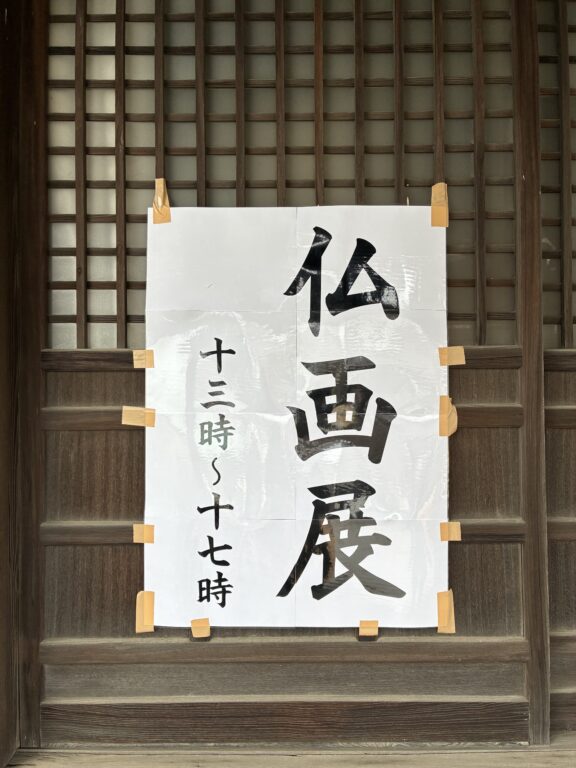 仏画展
十三時～十七時